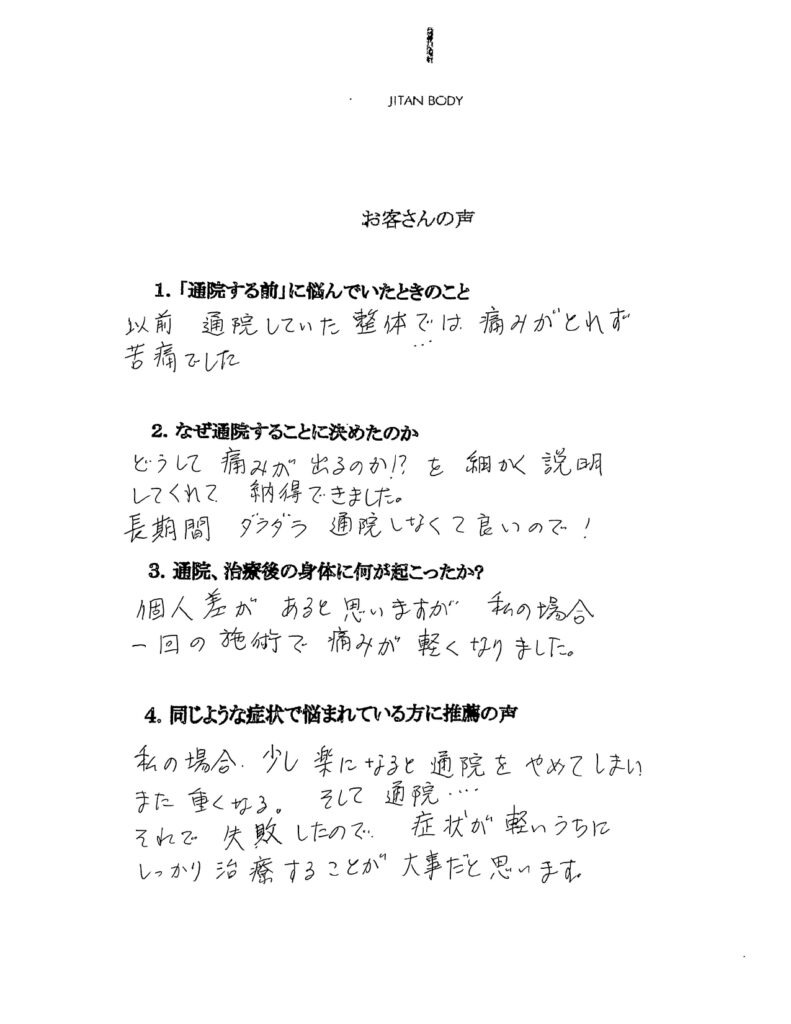 JITAN BODY
お客さんの声
1.「通院する前」に悩んでいたときのこと
以前 通院していた 整体では 痛みがとれず
苦痛でした …
2. なぜ通院することに決めたのか
どうして 痛みが 出るのか!? を 細かく 説明
してくれて 納得できました。
長期間 ダラダラ 通院しなくて良いので!
3. 通院、治療後の身体に何が起こったか?
個人差が あると思いますが 私の場合
一回の施術で 痛みが 軽くなりました。
4. 同じような症状で悩まれている方に推薦の声
私の場合、少し楽になると通院をやめてしまい
また重くなる。 そして 通院‥‥
それで 失敗したので、 症状が軽いうちに
しっかり治療することが 大事だと思います。